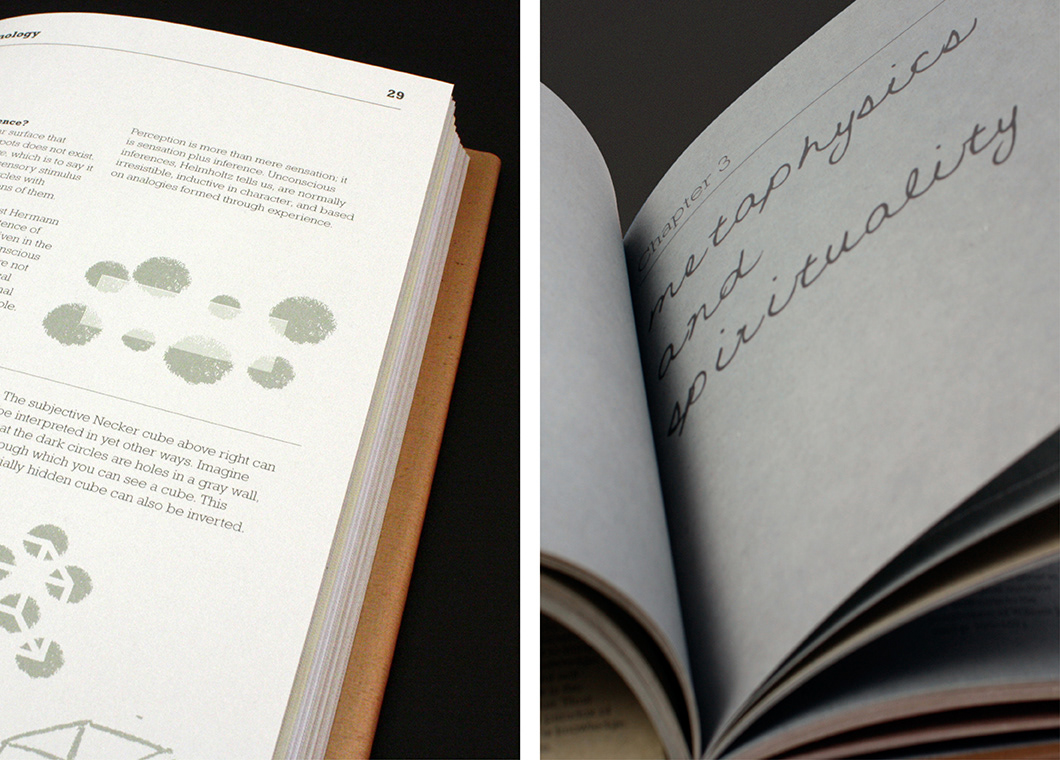 29
ence?
surface that
pots does not exist.
e, which is to say it
sensory stimulus
rcles with
ons of them
Perception is more than mere sensation: it
is sensation plus inference. Unconscious
inferences, Helmholtz tells us, are normally
irresistible, inductive in character, and based
on analogies formed through experience.
st Hermann
tence of
iven in the
nscious
re not
al
nal
ple.
The subjective Necker cube above right can
be interpreted in yet other ways. Imagine
at the dark circles are holes in a gray wall,
ough which you can see a cube. This
ially hidden cube can also be inverted.
Chapter 3
metaphysics
and
spirituality